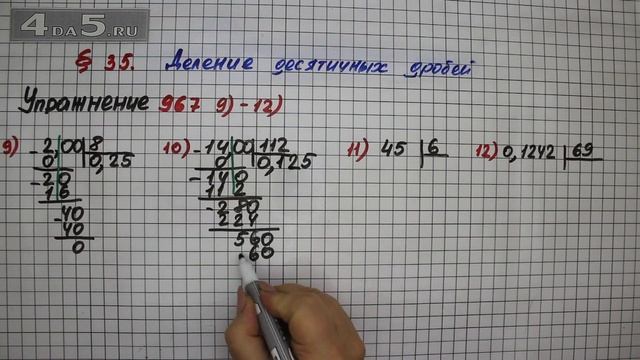 4DA5.RU
§ 35. Деление десятичных дробей
Упражнение 967 9)-12)
9) -2,00 8
0 0,25
-20
16
-40
40
0
10) -14,00 112
0 0,125
-140
112
-280
224
560
60
11) 45 6
12) 0,1242 69